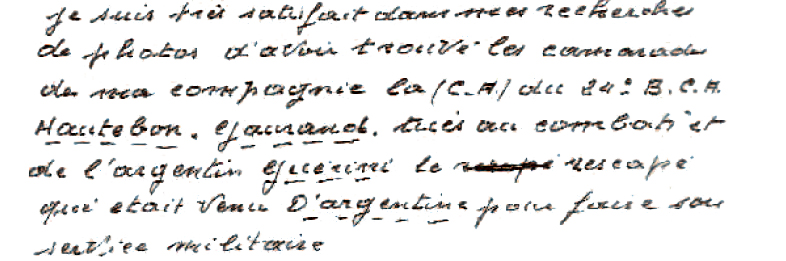 je suis très satisfait dans mes recherches
de photos d'avoir trouvé les camarades
de ma compagnie la (C.A) du 24e B.C.A
Hautebon. tués au combat et
de l'argentin Guerini le rescapé
qui etait venu D'argentine pour faire son
service militaire